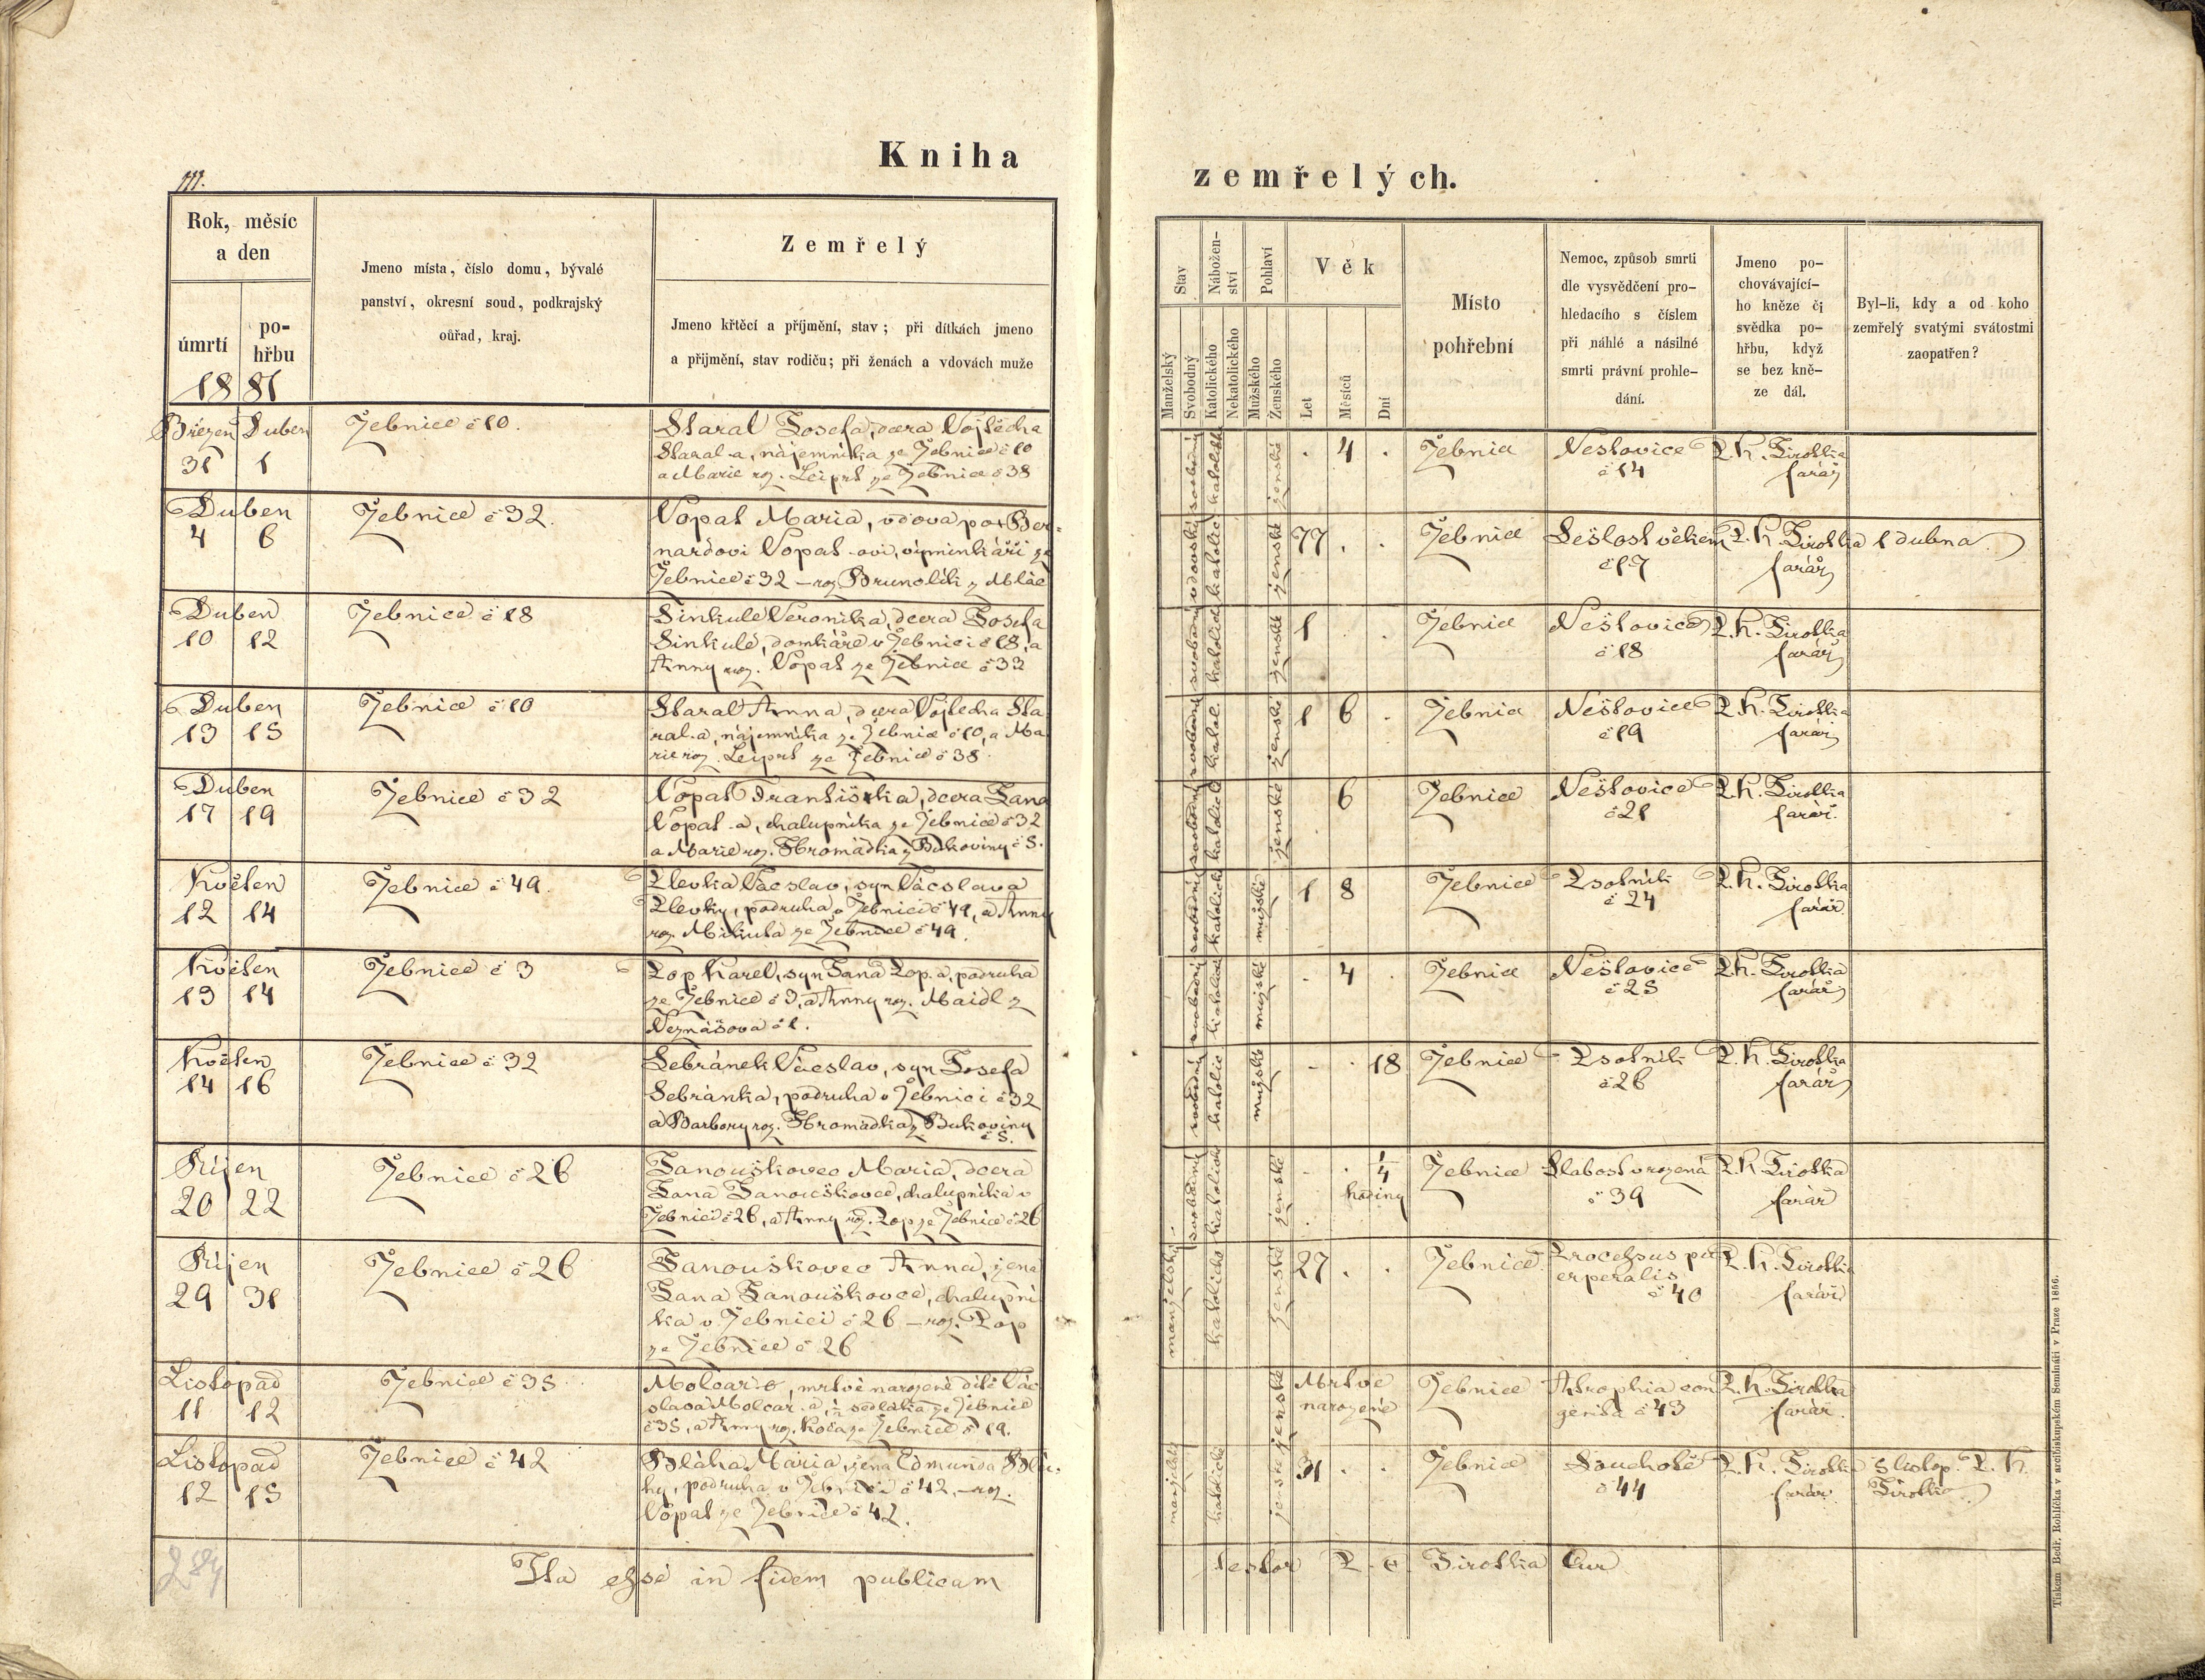 Kniha
zemřelých.
111.
Rok, měsíc
a den
úmrtí
po-
hřbu
1881
Jmeno místa, číslo domu, bývalé
panství, okresní soud, podkrajský
ouřad, kraj.
Zemřelý
Jmeno křtěcí a příjmění, stav; při dítkách jmeno
a přijmění, stav rodičů; při ženách a vdovách muže
Stav
Manželský
Svobodný
Nábožen-
ství
Katolického
Nekatolického
Pohlaví
Mužského
Ženského
Věk
Let
Měsíců
Dní
Místo
pohřební
Nemoc, způsob smrti
dle vysvědčení pro-
hledacího s číslem
při náhlé a násilné
smrti právní prohle-
dání.
Jmeno po-
chovávající-
ho kněze či
svědka po-
hřbu, když
se bez kně-
ze dál.
Byl-li, kdy a od koho
zemřelý svatými svátostmi
zaopatřen?
Březen Duben
31 1
Žebnice č 10.
Staral Josefa, dcera Vojtěcha
Staral-a, nájemníka ze Žebnice č 10
a Marie roz. Leiprt ze Žebnice č 38
svobodný
katolick
ženské
. 4 .
Žebnice
Neštovice
č 14
P. K. Sirotka
farář
Duben
4 6
Žebnice č 32.
Vopat Maria, vdova po + Ber-
nardovi Vopat-ovi, výminkáři ze
Žebnice č 32 – roz Brunclík z Mlac
vdovský
katolic
ženské
77 . .
Žebnice
Sešlost věkem
č 17
P. K. Sirotka
farář
1 dubna
Duben
10 12
Žebnice č 18
Sinkule Veronika, dcera Josefa
Sinkule, domkáře v Žebnici č 18, a
Anny roz. Vopat ze Žebnice č 32
svobodný
katolick
ženské
1 . .
Žebnice
Neštovice
č 18
P. K. Sirotka
farář
Duben
13 15
Žebnice č 10
Staral Anna, dcera Vojtěcha Sta
ral-a, nájemníka ze Žebnice č 10, a Ma
rie roz. Leiprt ze Žebnice č 38
svobodný
katol.
ženské
1 6 .
Žebnice
Neštovice
č 19
P. K. Sirotka
farář
Duben
17 19
Žebnice č 32
Vopat Františka, dcera Jana
Vopat-a, chalupníka ze Žebnice č 32
a Marie roz. Hromádka z Bukoviny č 5.
svobodný
katolick
ženské
6
Žebnice
Neštovice
č 21
P. K. Sirotka
farář.
Květen
12 14
Žebnice č 49.
Plevka Václav, syn Václava
Plevky, podruha v Žebnici č 49, a Anny
roz. Mikuta ze Žebnice č 49.
svobodný
katolick
mužské
1 8
Žebnice
Psotník
č 24
P. K. Sirotka
farář
Květen
13 14
Žebnice č 3
Pop Karel, syn Jana Pop-a, podruha
ze Žebnice č 3, a Anny roz. Maidl z
Neznášova č 1.
svobodný
katolick
mužské
. 4 .
Žebnice
Neštovice
č 25
P. K. Sirotka
farář
Květen
14 16
Žebnice č 32
Sebránek Václav, syn Josefa
Sebránka, podruha v Žebnici č 32
a Barbory roz. Hromádka z Bukoviny
č 5.
svobodný
katolic
mužské
. . 18
Žebnice
Psotník
č 26
P. K. Sirotka
farář
Říjen
20 22
Žebnice č 26
Janouškovec Maria, dcera
Jana Janouškovce, chalupníka v
Žebnici č 26, a Anny roz. Pop ze Žebnice č 26
svobodný
katolick
ženské
. . 1/4
hodiny
Žebnice
Slabost vrozená
č 39
P. K. Sirotka
farář
Říjen
29 31
Žebnice č 26
Janouškovec Anna, žena
Jana Janouškovce, chalupní
ka v Žebnici č 26 – roz. Pop
ze Žebnice č 26
manželský
katolick
ženské
27 . .
Žebnice
Processus pu
erperalis
č 40
P. K. Sirotka
farář
Listopad
11 12
Žebnice č 35
mrtvě narozené dítě Vác
slava Molcar-a, 1/2 sedláka ze Žebnice
č 35, a Anny roz. Koča ze Žebnice č 19.
ženské
Mrtvě
narozené
Žebnice
Atrophia con
genita č 43
P. K. Sirotka
farář.
Listopad
12 15
Žebnice č 42
Bláha Maria, žena Edmunda Blá-
hy, podruha v Žebnici č 42, – roz.
Vopat ze Žebnice č 42.
manželský
katolick
ženské
31 . .
Žebnice
Souchotě
č 44
P. K. Sirotka
farář
5 listop. P. K.
Sirotka
Ita esse in fidem publicam
testor P. C. Sirotka Cur
Tiskem Bedř. Rohlíčka v arcibiskupském Semináři v Praze 1866.